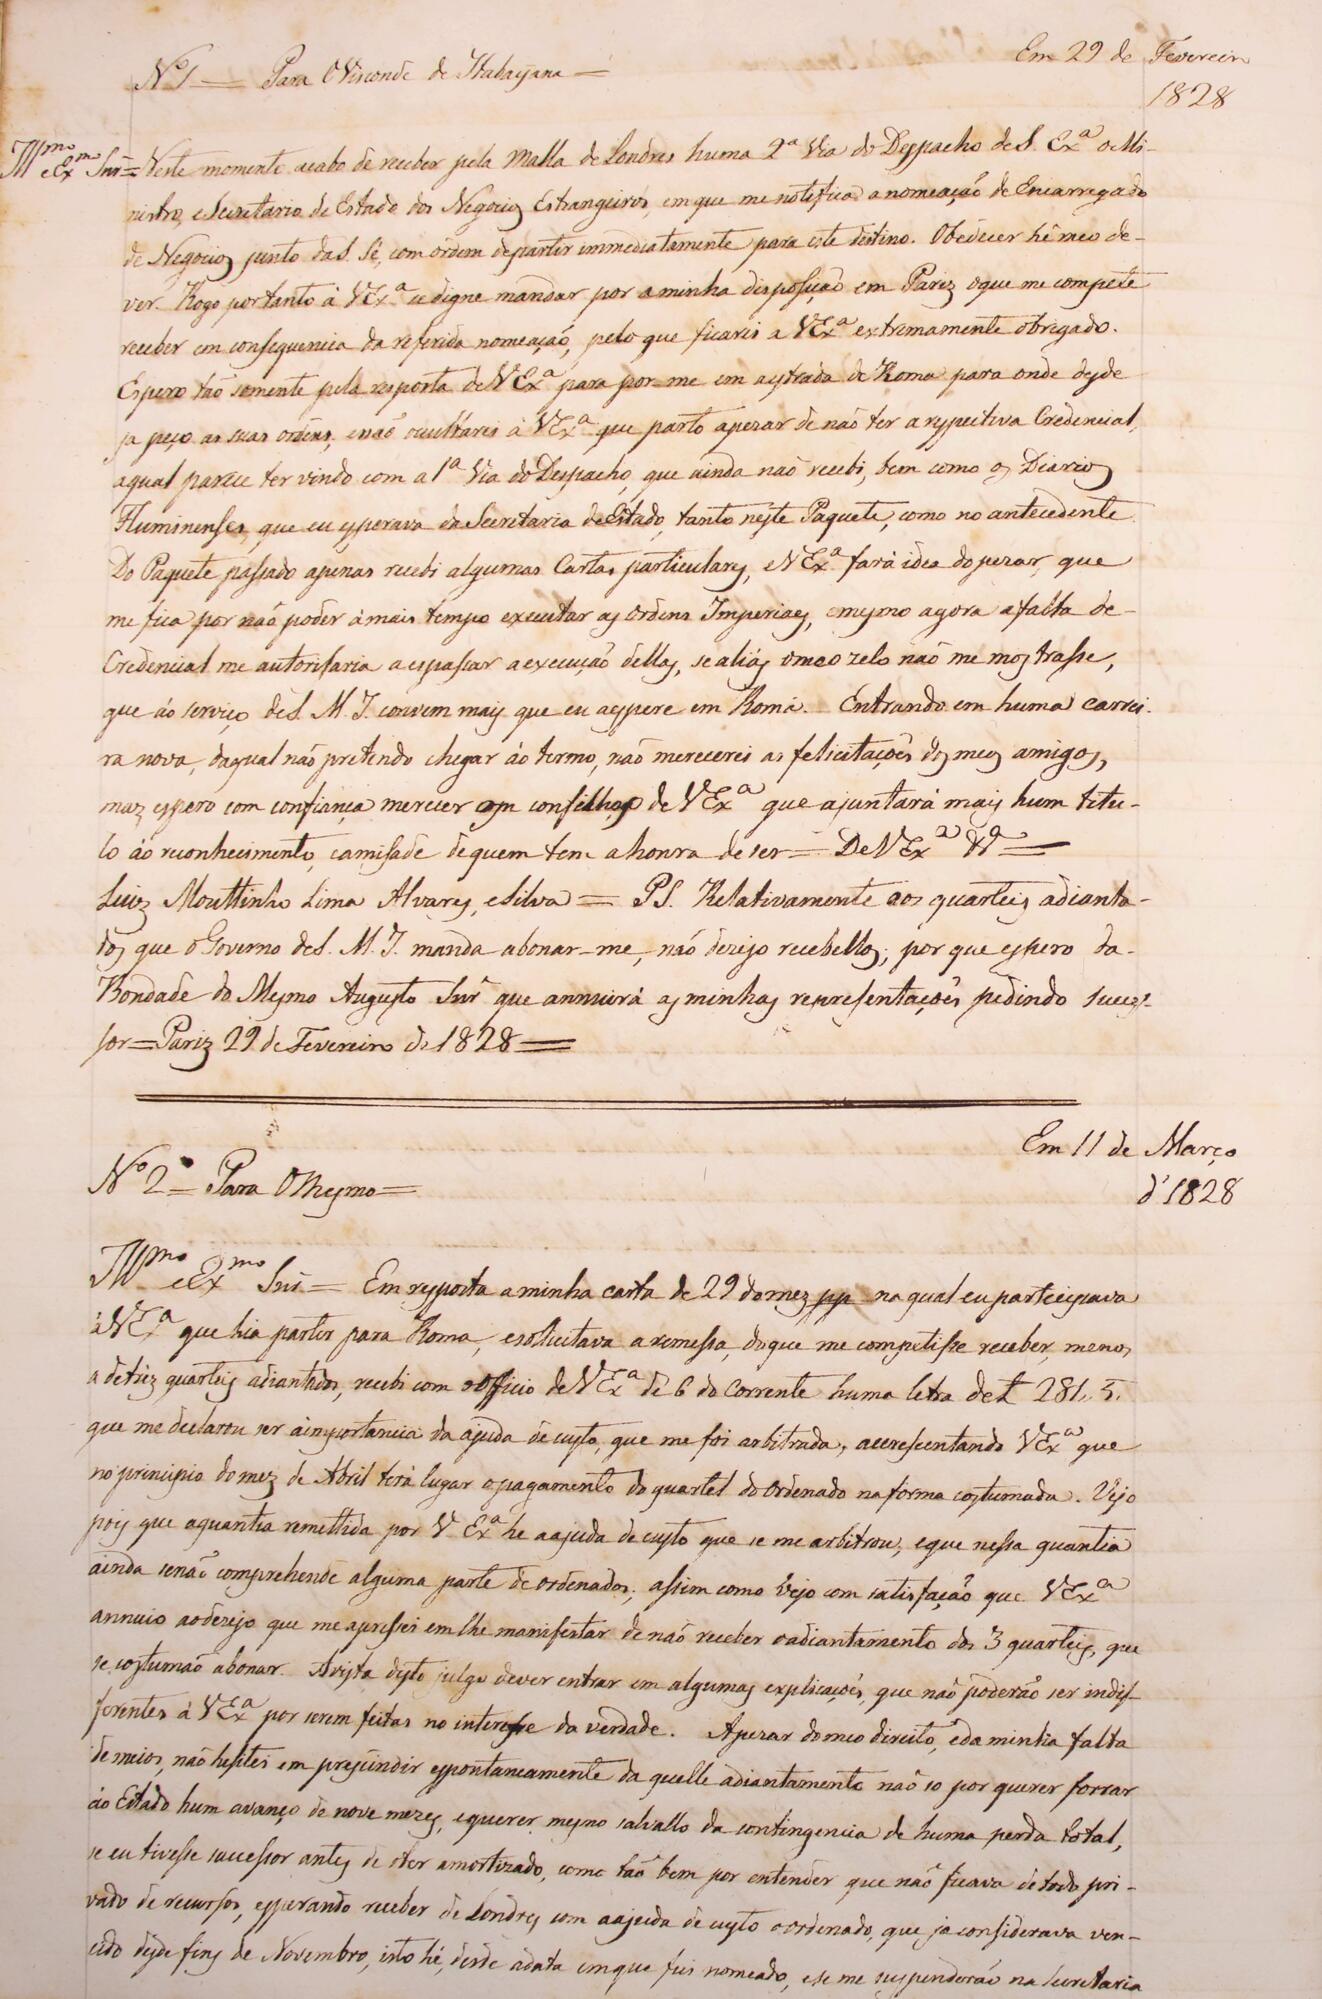 Nº 1 = Para O Visconde de Itabayana =
Em 29 de Fevereiro
1828
Illmo e Exmo Snr = Neste momento acabo de receber pela Malla de Londres huma 2ª Via do Despacho de S. Exª o Mi-
nistro, e Secretario de Estado dos Negocios Estrangeiros, em que me notifica a nomeação de Encarregado
de Negocios junto da S. Sé, com ordem de partir immediatamente para este destino. Obedecer hé meo de-
ver. Rogo por tanto à V Exª se digne mandar por a minha disposição em Pariz o que me compete
receber em consequencia da referida nomeação, pelo que ficarei a V Exª extremamente obrigado.
Espero tão somente pela resposta de V Exª para por-me em a estrada de Roma para onde desde
ja peço as suas ordens, e não occultarei à V Exª que parto apezar de não ter a respectiva Credencial,
a qual parece ter vindo com a 1ª Via do Despacho, que ainda não recebi, bem como os Diarios
Fluminenses, que eu esperava da Secretaria de Estado, tanto neste Paquete, como no antecedente
Do Paquete passado apenas recebi algumas Cartas particulares, e V Exª fará idea do pezar, que
me fica por não poder á mais tempo executar as Ordens Imperiaes, e mesmo agora a falta de-
Credencial me autorisaria a espassar a execução dellas, se aliás o meo zelo não me mostrasse,
que áo serviço de S. M. I. convem mais que eu a espere em Roma. Entrando em huma carrei-
ra nova, da qual não pretendo chegar áo termo, não merecerei as felicitações dos meos amigos,
maz espero com confiança merecer os conselhos de V Exª que ajuntará mais hum titu-
lo áo reconhecimento, e amisade de quem tem a honra de ser = De V Exª &ª =
Luiz Mouttinho Lima Alvares, e Silva = PS. Relativamente aos quarteis adianta-
dos que o Governo de S. M. I. manda abonar-me, não dezejo recebellos, por que espero da-
Bondade do Mesmo Augusto Snr que annuirá as minhas representações pedindo succes-
sor = Pariz 29 de Fevereiro de 1828 =
Em 11 de Março
d'1828
Nº 2º = Para O Mesmo =
Illmo e Exmo Snr = Em resposta a minha carta de 29 do mez pp na qual eu participava
à V Exª que hia partir para Roma, e sollicitava a remessa, do que me competisse receber, menos
a de trez quarteis adiantados, recebi com o Officio de V Exª de 6 do Corrente huma letra de £ 281. 5.
que me declarou ser a importancia da ajuda de custo, que me foi arbitrada, accrescentando V Exª que
no principio do mez de Abril terá lugar o pagamento do quartel do Ordenado na forma costumada. Vejo
pois que a quantia remettida por V Exª he a ajuda de custo que se me arbitrou, e que nessa quantia
ainda se não comprehende alguma parte de ordenados, assim como Vejo com satisfação que V Exª
annuio ao dezejo que me apressei em lhe manifestar de não receber o adiantamento dos 3 quarteis, que
se costumão abonar. Avista disto julgo dever entrar em algumas explicações, que não poderão ser indif-
ferentes à V Exª por serem feitas no interesse da verdade. Apezar do meo direito, e da minha falta
de meios, não hesitei em prescindir espontaneamente da quelle adiantamento não so por querer forrar
áo Estado hum avanço de nove mezes, e querer mesmo salvallo da contingencia de huma perda total,
se eu tivesse successor antes de o ter amortizado, como tão bem por entender que não ficava de todo pri-
vado de recursos, esperando receber de Londres com a ajuda de custo o ordenado, que ja considerava ven-
cido desde fins de Novembro, isto hé, desde a data em que fui nomeado, e se me suspenderão na Secretaria